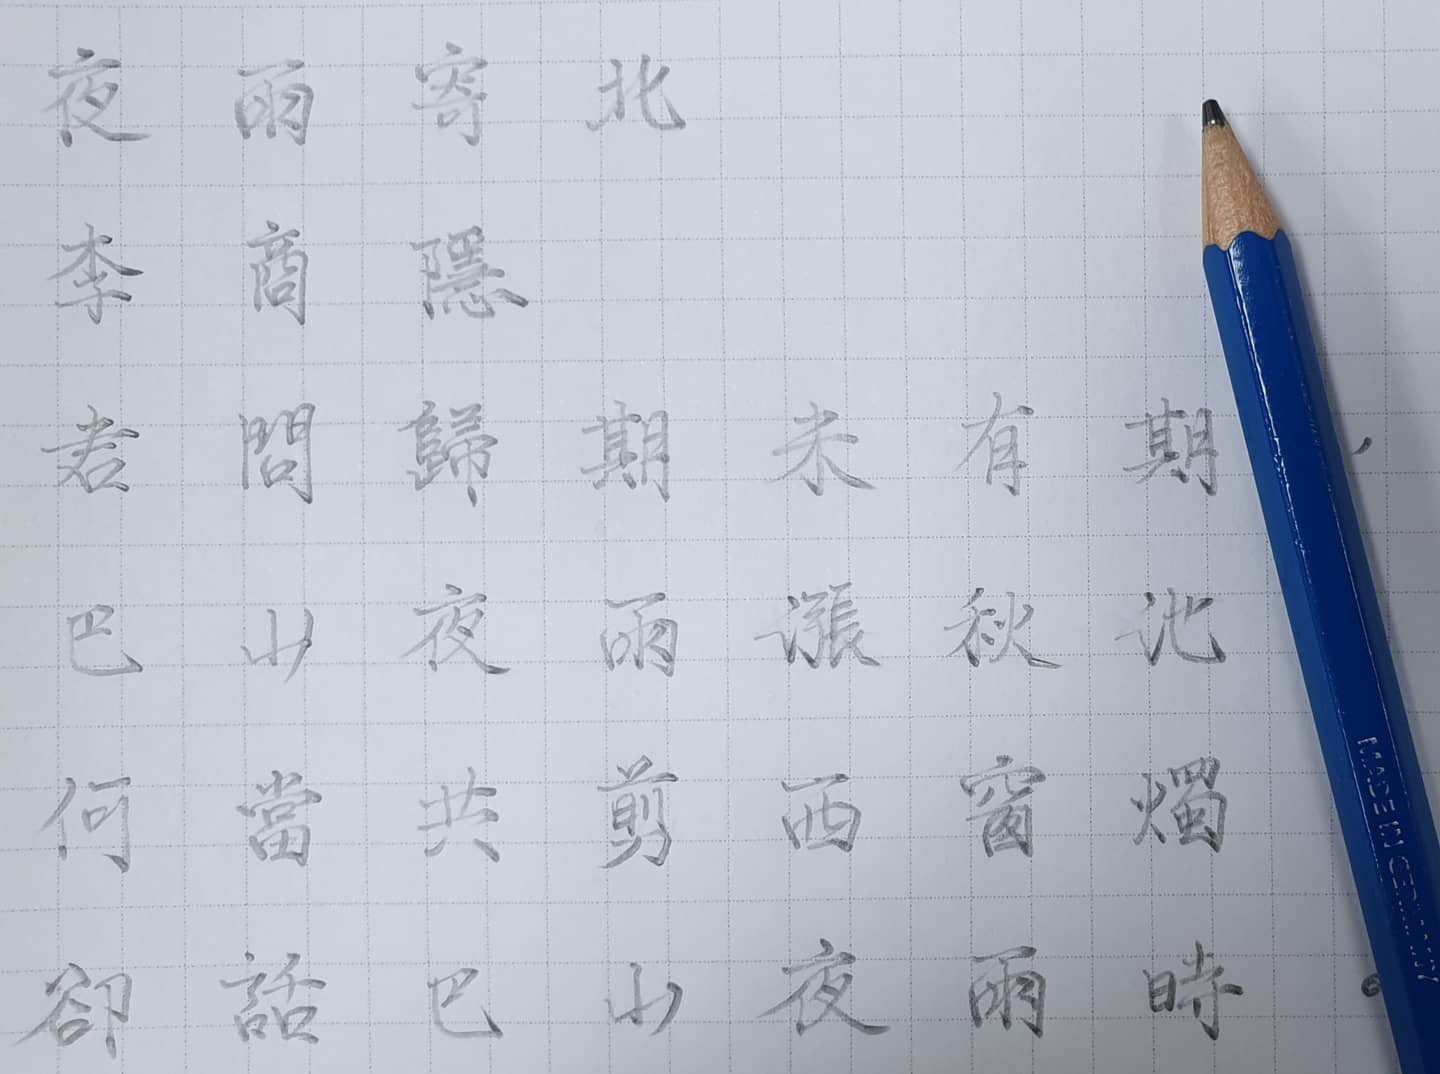 夜雨寄北
李商隱
君問歸期未有期，
巴山夜雨漲秋池
何當共剪西窗燭
卻話巴山夜雨時。
MADE IN GERMANY